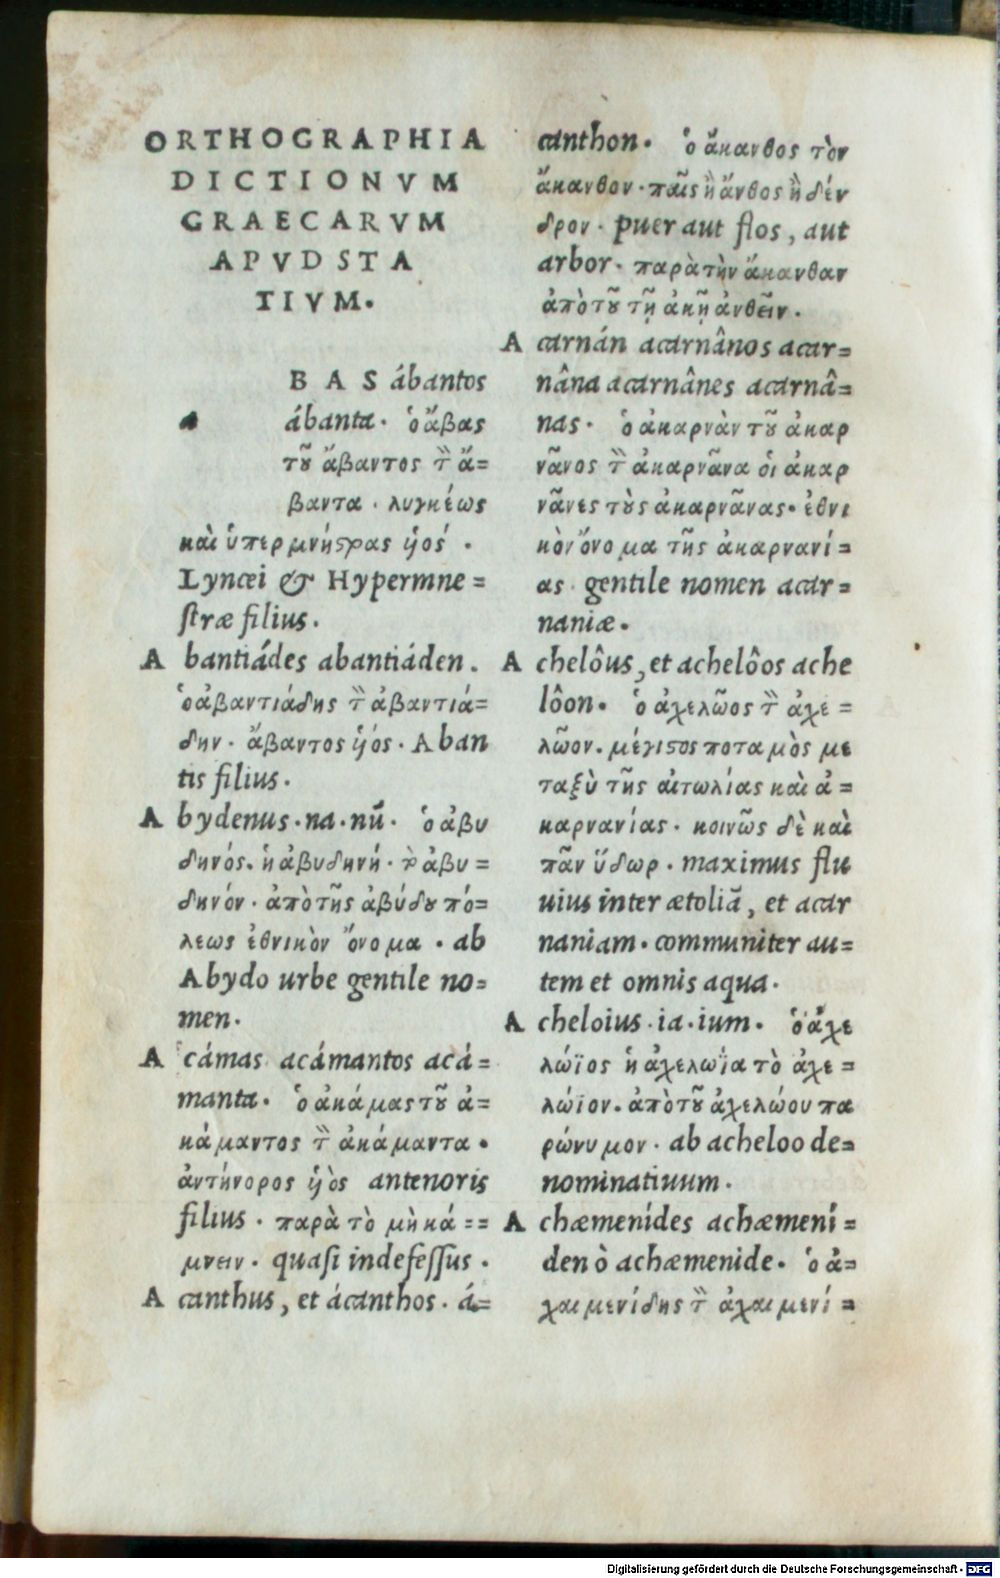 ORTHOGRAPHIA
DICTIONVM
GRAECARVM
APVD STA
TIVM.
a BAS ábantos
ábanta. ὁ ἄβας
τοῦ ἄβαντος τὸν ἄ=
βαντα. λυγκέως
καὶ ὑπερμνήστρας ὑιός.
Lyncei & Hypermne=
ſtræ filius.
A bantiádes abantiáden.
ὁ ἀβαντιάδης τὸν ἀβαντιά=
δην. ἄβαντος ὑιός. Aban
tis filius.
A bydenus.na.nū. ὁ ἀβυ
δηνός. ἡ ἀβυδηνή. τὸ ἀβυ=
δηνόν. ἀπὸ τῆς ἀβύδου πό=
λεως ἐθνικὸν ὄνομα. ab
Abydo urbe gentile no=
men.
A cámas acámantos acá=
manta. ὁ ἀκάμας τοῦ ἀ=
κάμαντος τὸν ἀκάμαντα.
ἀντήνορος ὑιὸς antenoris
filius. παρὰ τὸ μὴ κά==
μνειν. quaſi indefeſſus.
A canthus, et ácanthos. á=
canthon. ὁ ἄκανθος τὸν
ἄκανθον. παῖς ἢ ἄνθος ἢ δέν
δρον. puer aut flos, aut
arbor. παρὰ τὴν ἄκανθαν
ἀπὸ τοῦ τῇ ἀκῇ ἀνθεῖν.
A carnán acarnânos acar=
nâna acarnânes acarnâ=
nas. ὁ ἀκαρνὰν τοῦ ἀκαρ
νᾶνος τὸν ἀκαρνᾶνα οἱ ἀκαρ
νᾶνες τοὺς ἀκαρνᾶνας. ἐθνι
κὸν ὄνομα τῆς ἀκαρνανί=
ας. gentile nomen acar=
naniæ.
A chelôus, et achelôos ache
lôon. ὁ ἀχελῶος τὸν ἀχε=
λῶον. μέγιστος ποταμὸς με
ταξὺ τῆς αἰτωλίας καὶ ἀ=
καρνανίας. κοινῶς δὲ καὶ
πᾶν ὕδωρ. maximus flu
uius inter ætoliā, et acar
naniam. communiter au=
tem et omnis aqua.
A cheloius.ia.ium. ὁ ἀχε
λώϊος ἡ ἀχελωΐα τὸ ἀχε=
λώϊον. ἀπὸ τοῦ ἀχελώου πα
ρώνυμον. ab acheloo de=
nominatiuum.
A chæmenídes achæmení=
den ò achæmenide. ὁ ἀ=
χαιμενίδης τὸν ἀχαιμενί=
Digitalisierung gefördert durch die Deutsche Forschungsgemeinschaft - DFG